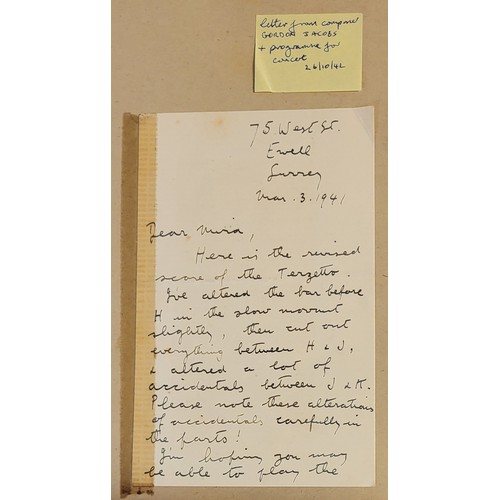 letter from composer
GORDON JACOBS
+ programme for
concert
26/10/42
75 West St.
Ewell
Surrey
Mar. 3. 1941
Dear
Here is the revised
score of the Terzetto.
I've altered the bar before
H in the slow movmnt
slightly, then cut out
everything between H & J,
& altered a lot of
accidentals between J & K.
Please note these alterations
of accidentals carefully in
the parts!
I'm hoping you may
be able to play the